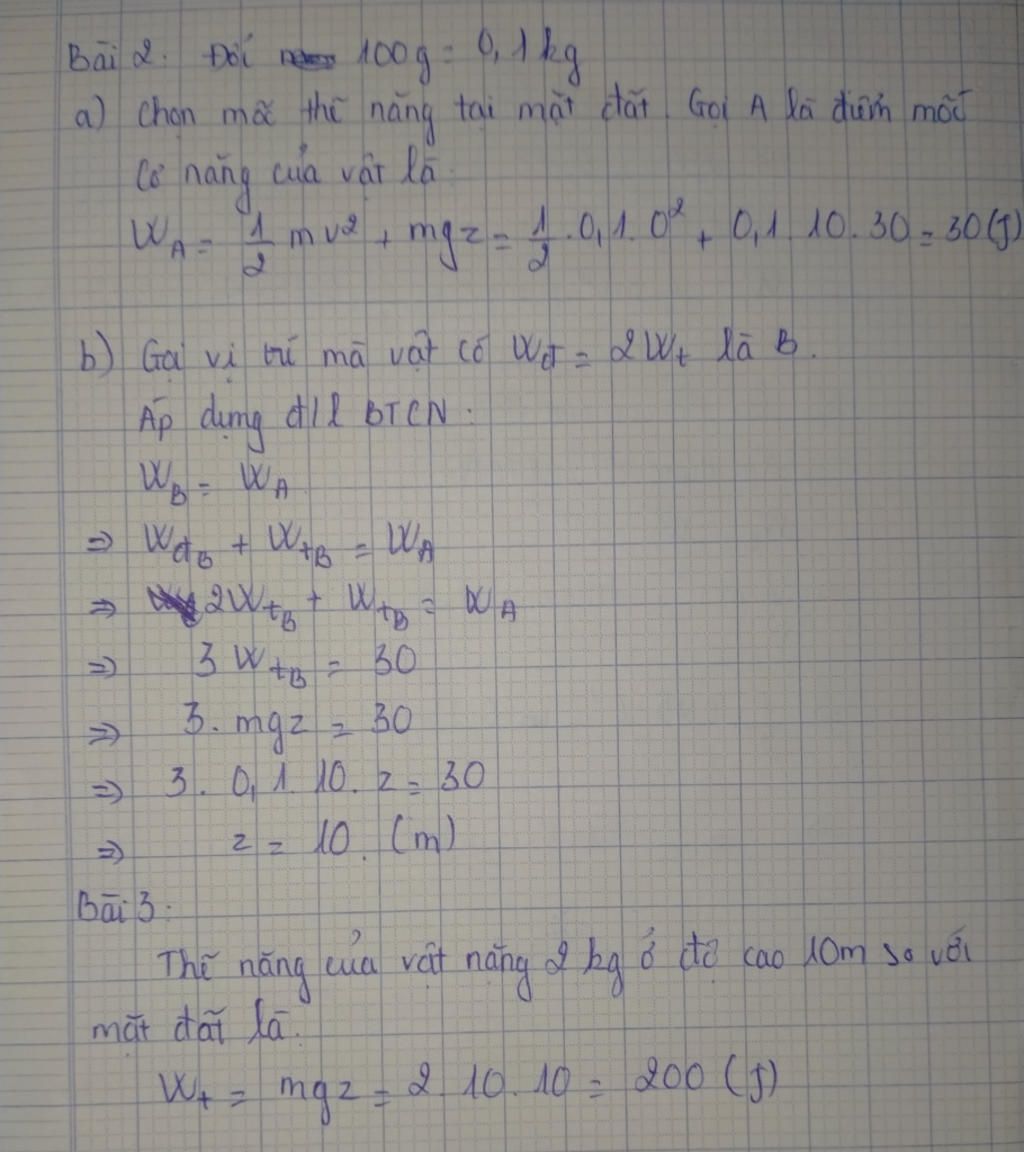 Bài 2. Đổi 100g = 0,1kg
a) Chọn mốc thế năng tại mặt đất. Gọi A là điểm mốc
Cơ năng của vật là
W_A = 1/2 mv² + mgz = 1/2 . 0,1. 0² + 0,1. 10. 30 = 30 (J)
b) Gọi vị trí mà vật có Wđ = 2Wt là B.
Áp dụng đ/l BTCN:
W_B = W_A
⇒ Wđ_B + Wt_B = W_A
⇒ 2Wt_B + Wt_B = W_A
⇒ 3Wt_B = 30
⇒ 3. mgz = 30
⇒ 3. 0,1. 10. z = 30
⇒ z = 10. (m)
Bài 3:
Thế năng của vật nặng 2 kg ở độ cao 10m so với
mặt đất là.
Wt = mgz = 2. 10. 10 = 200 (J)